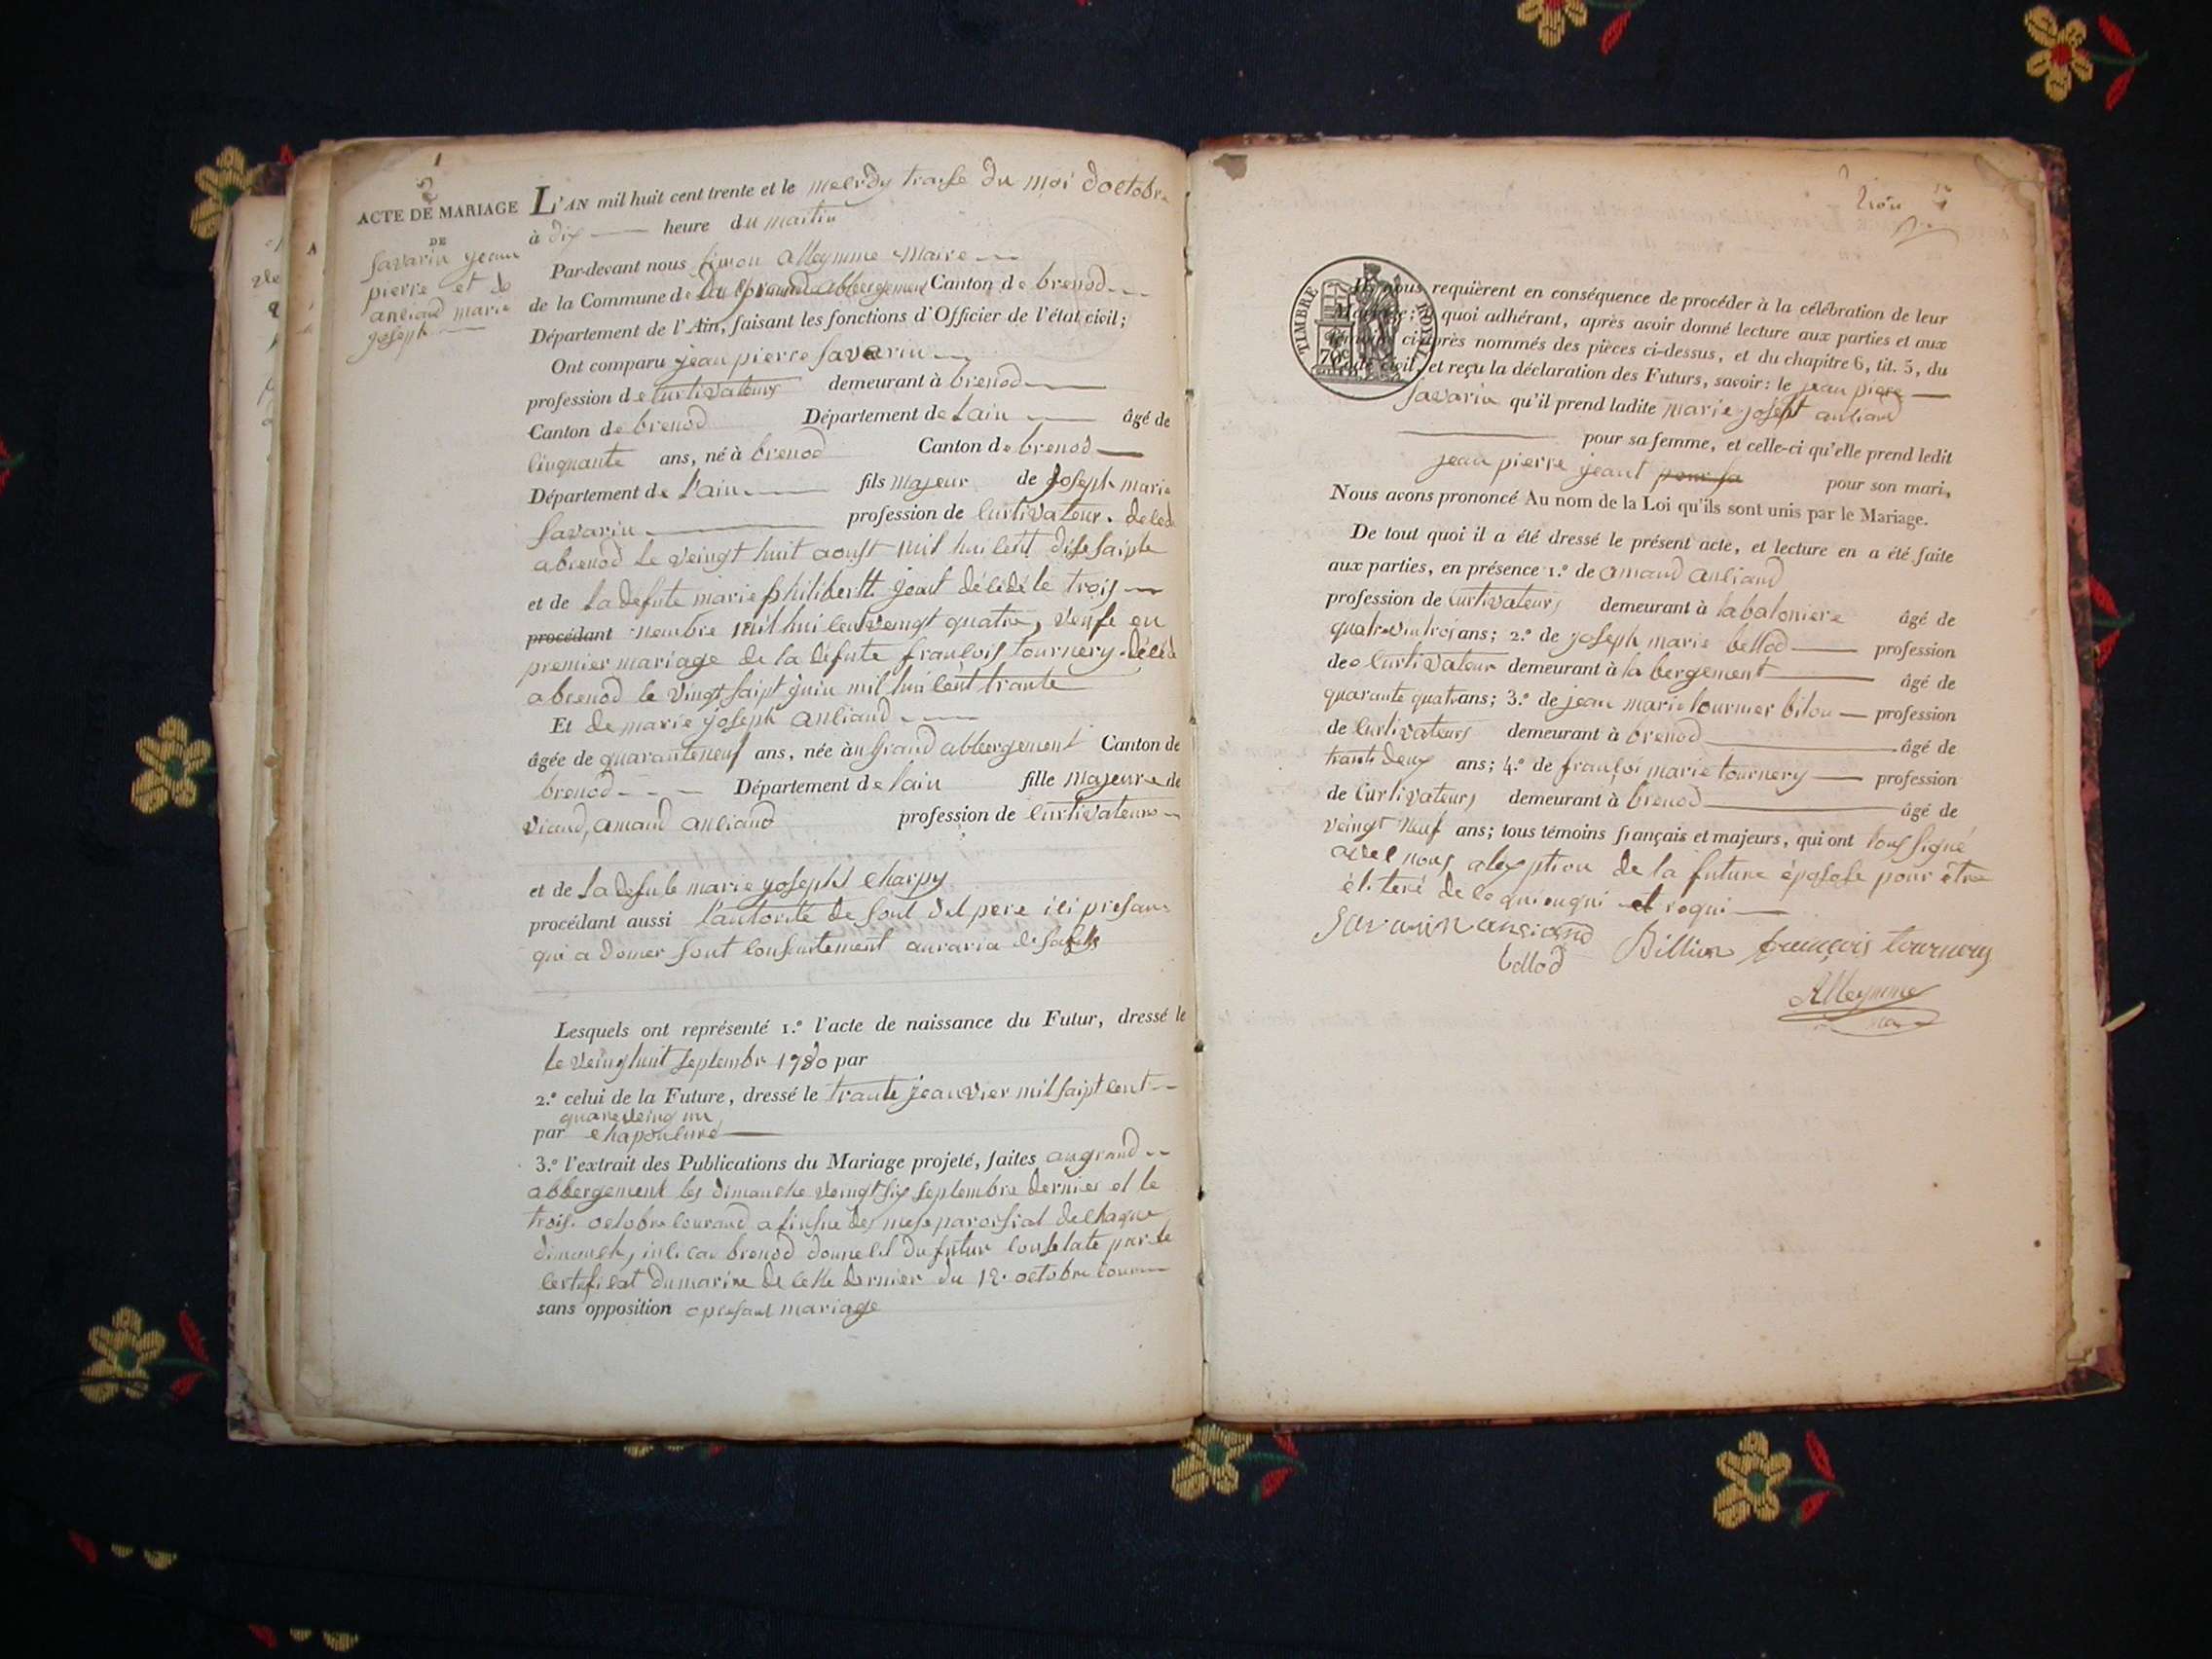 5
ACTE DE MARIAGE
DE
Savarin jean
pierre et de
anciand marie
joseph
L'AN mil huit cent trente et le mecrdy traise du moi doctobre
à dix heure du maitin
Par-devant nous simon alleymme maire
de la Commune de du grand abbergement Canton de brenod
Département de l'Ain, faisant les fonctions d'Officier de l'état civil;
Ont comparu jean pierre savarin
profession de curtivateurs demeurant à brenod
Canton de brenod Département de Lain âgé de
cinquante ans, né à brenod Canton de brenod
Département de L'ain fils majeur de joseph marie
savarin profession de curtivateur. decede
a brenod le veingt huit aoust mil huicent disesaipte
et de la defute marie philibertte jeant décédé le trois
procédant nombre mil hui cent veingt quatre, veufe en
premier mariage de la défute francois tournery décédé
a brenod le vingt saipt juin mil hui cent trante
Et de marie joseph anciand
âgée de quaranteneuf ans, née à u grand abbergement Canton de
brenod Département de lain fille majeure de
viand, amand anciand profession de curtivateurs
et de la defute marie josepht charpy
procédant aussi l'autorité de sout dit pere ici presan
qui a donner sout consentement auraria de sa fille
Lesquels ont représenté 1.º l'acte de naissance du Futur, dressé le
le veinghuit septembr 1780 par
2.º celui de la Future, dressé le trante jeanvier mil saipt cent
quatreveing un
par chapouluné
3.º l'extrait des Publications du Mariage projeté, faites augrand
abbergement les dimanche veingt six septembre dernier et le
trois octobre courand a linsue des mese paroissial de chaque
dimanch, brenod domecil du futur constate par le
certificat du marire de cette dernier du 12 octobre couran
sans opposition opresant mariage
TIMBRE ROYAL
70c
Ils nous requièrent en conséquence de procéder à la célébration de leur
Mariage; à quoi adhérant, après avoir donné lecture aux parties et aux
témoins ci-après nommés des pièces ci-dessus, et du chapitre 6, tit. 5, du
Code civil, et reçu la déclaration des Futurs, savoir: le jean piere
savarin qu'il prend ladite marie josept anciand
pour sa femme, et celle-ci qu'elle prend ledit
jean pierre jeant pour sa pour son mari,
Nous avons prononcé Au nom de la Loi qu'ils sont unis par le Mariage.
De tout quoi il a été dressé le présent acte, et lecture en a été faite
aux parties, en présence 1.º de amand anciand
profession de curtivateurs demeurant à la baloniere âgé de
quatrevintrois ans; 2.º de joseph marie bellod profession
de curtivateur demeurant à la bergement âgé de
quarante quatr ans; 3.º de jean marie tournier bilon profession
de curtivateurs demeurant à brenod âgé de
trante deux ans; 4.º de françoi marie tournery profession
de curtivateurs demeurant à brenod âgé de
veingt neuf ans; tous témoins français et majeurs, qui ont tous signé
avec nous, a lexption de la future épose pour être
éliteré de ce quienqui et roqui
savarin anciand Billion françois tournery
bellod
Alleymme